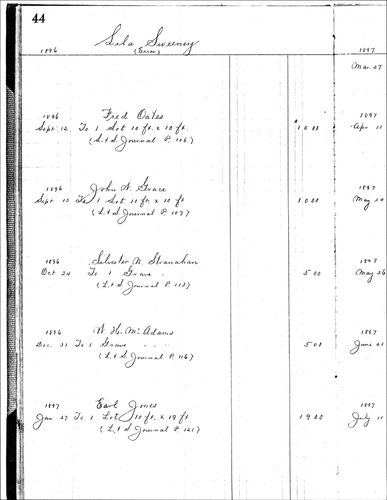 44
Lila Sweeney
1896 (Error) 1897
Mar. 27
1896 Fred Oates 1897
Sept. 12 To 1 Lot 10 ft. x 10 ft. 10 00 Apr 11
(L & S Journal P. 106)
1896 John W. Grace 1897
Sept. 13 To 1 Lot 10 ft. x 10 ft 10 00 May 24
(L & S Journal P. 107)
1896 Silvester N. Stranahan 1897
Oct 24 To 1 Grave 5 00 May 26
(L & S Journal P. 113)
1896 W. H. McAdams 1897
Dec. 31 To 1 Grave " " 5 00 June 21
(L & S Journal P. 116)
1897 Earl Jones 1897
Jan 27 To 1 Lot 10 ft. x 19 ft 19 00 July 11
(L & S Journal P. 121)